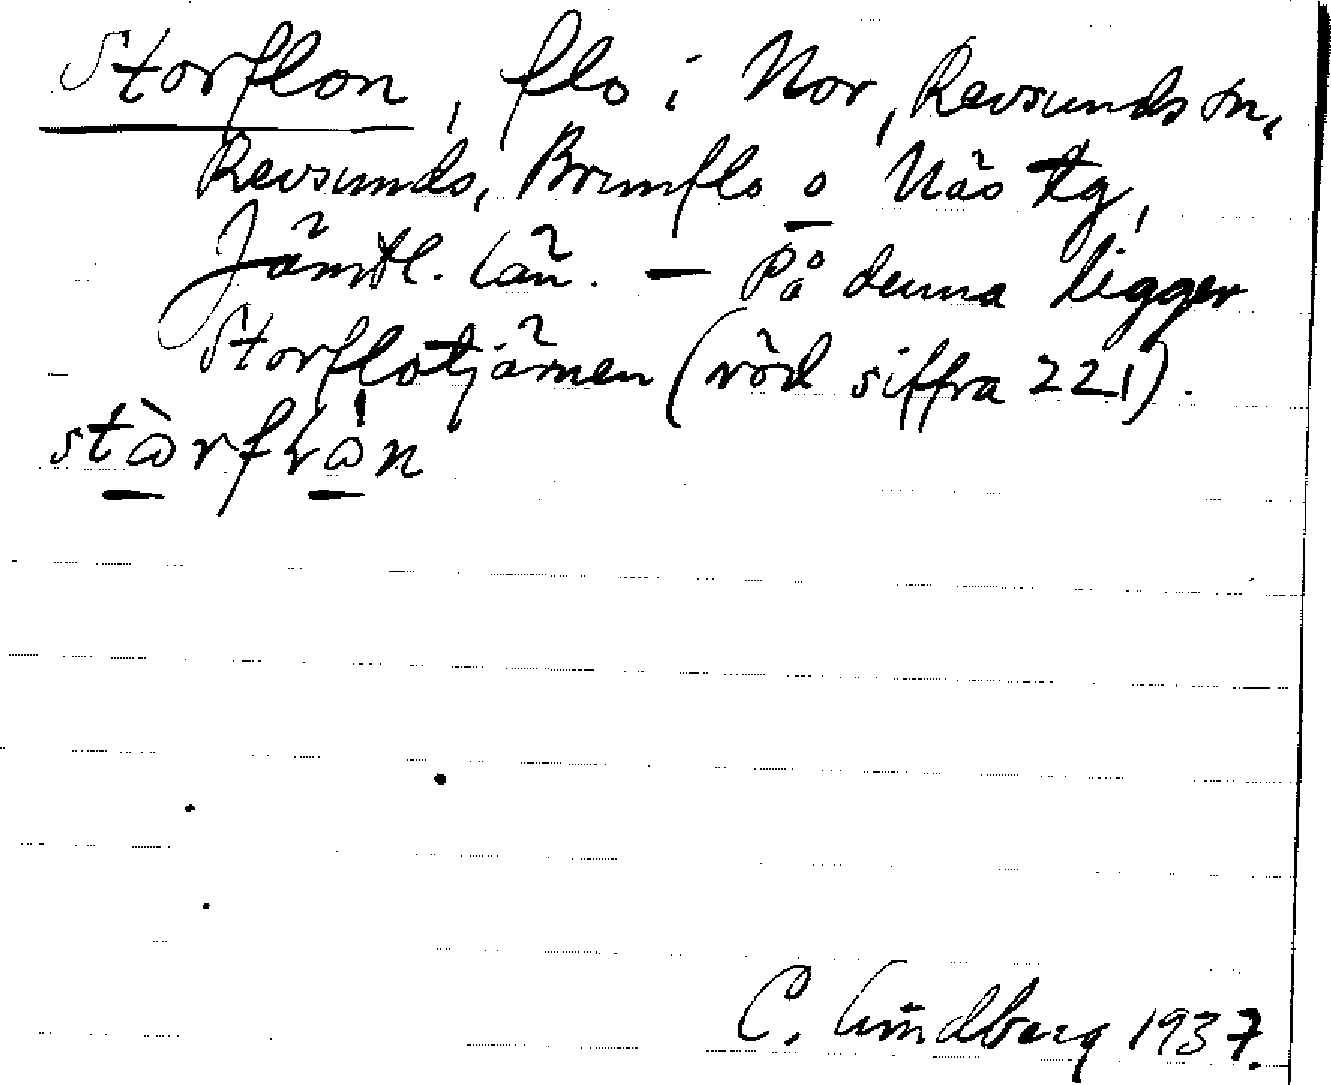 Storflon, flo i Nor, Revsunds sn,
Revsunds, Brunflo o Näs tg,
Jämtl. län. — På denna ligger
Storflotjärnen (röd siffra 221).
C. Lindberg 1937.